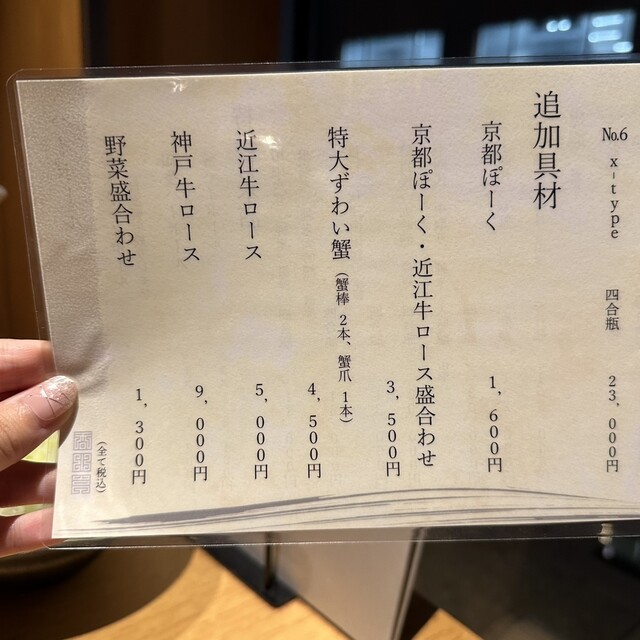 No.6 x-type 四合瓶 23,000円
追加具材
京都ぽーく 1,600円
京都ぽーく・近江牛ロース盛合わせ 3,500円
特大ずわい蟹(蟹棒 2本、蟹爪 1本) 4,500円
近江牛ロース 5,000円
神戸牛ロース 9,000円
野菜盛合わせ 1,300円
(全て税込)